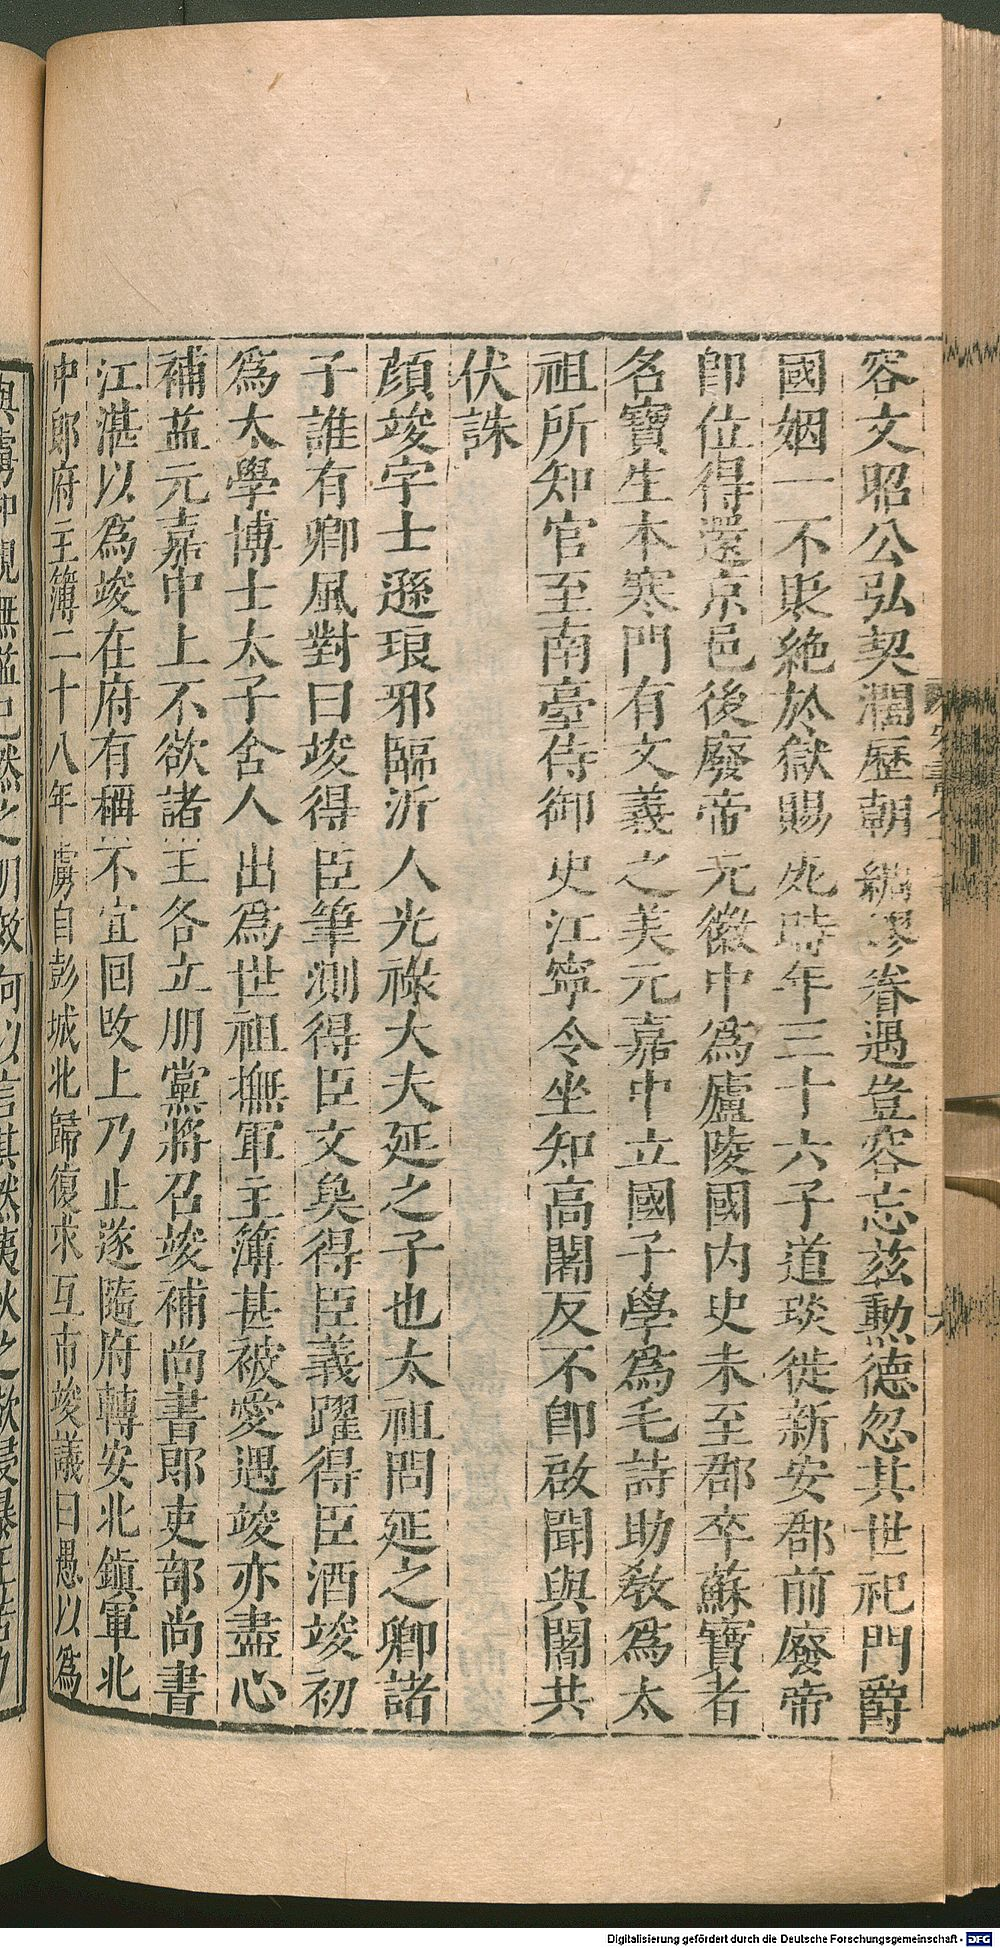 容文昭公弘契濶歷朝綢繆眷遇豈容忘茲勲德忽其世祀門爵
國姻一不貶絶於獄賜死時年三十六子道琰徙新安郡前廢帝
卽位得還京邑後廢帝元徽中爲廬陵國内史未至郡卒蘇寶者
名寶生本寒門有文義之美元嘉中立國子學爲毛詩助敎爲太
祖所知官至南臺侍御史江寧令坐知高闍反不卽啟聞與闍共
伏誅
顔竣字士遜琅邪臨沂人光祿大夫延之子也太祖問延之卿諸
子誰有卿風對曰竣得臣筆測得臣文㚖得臣義躍得臣酒竣初
爲太學博士太子舍人出爲世祖撫軍主簿甚被愛遇竣亦盡心
補益元嘉中上不欲諸王各立朋黨將召竣補尚書郎吏部尚書
江湛以爲竣在府有稱不宜回攺上乃止遂隨府轉安北鎭軍北
中郎府主簿二十八年虜自彭城北歸復求互市竣議曰愚以爲
與虜和親無益已然之明效何以言其然夷狄之欲侵暴正苦力
Digitalisierung gefördert durch die Deutsche Forschungsgemeinschaft - DFG